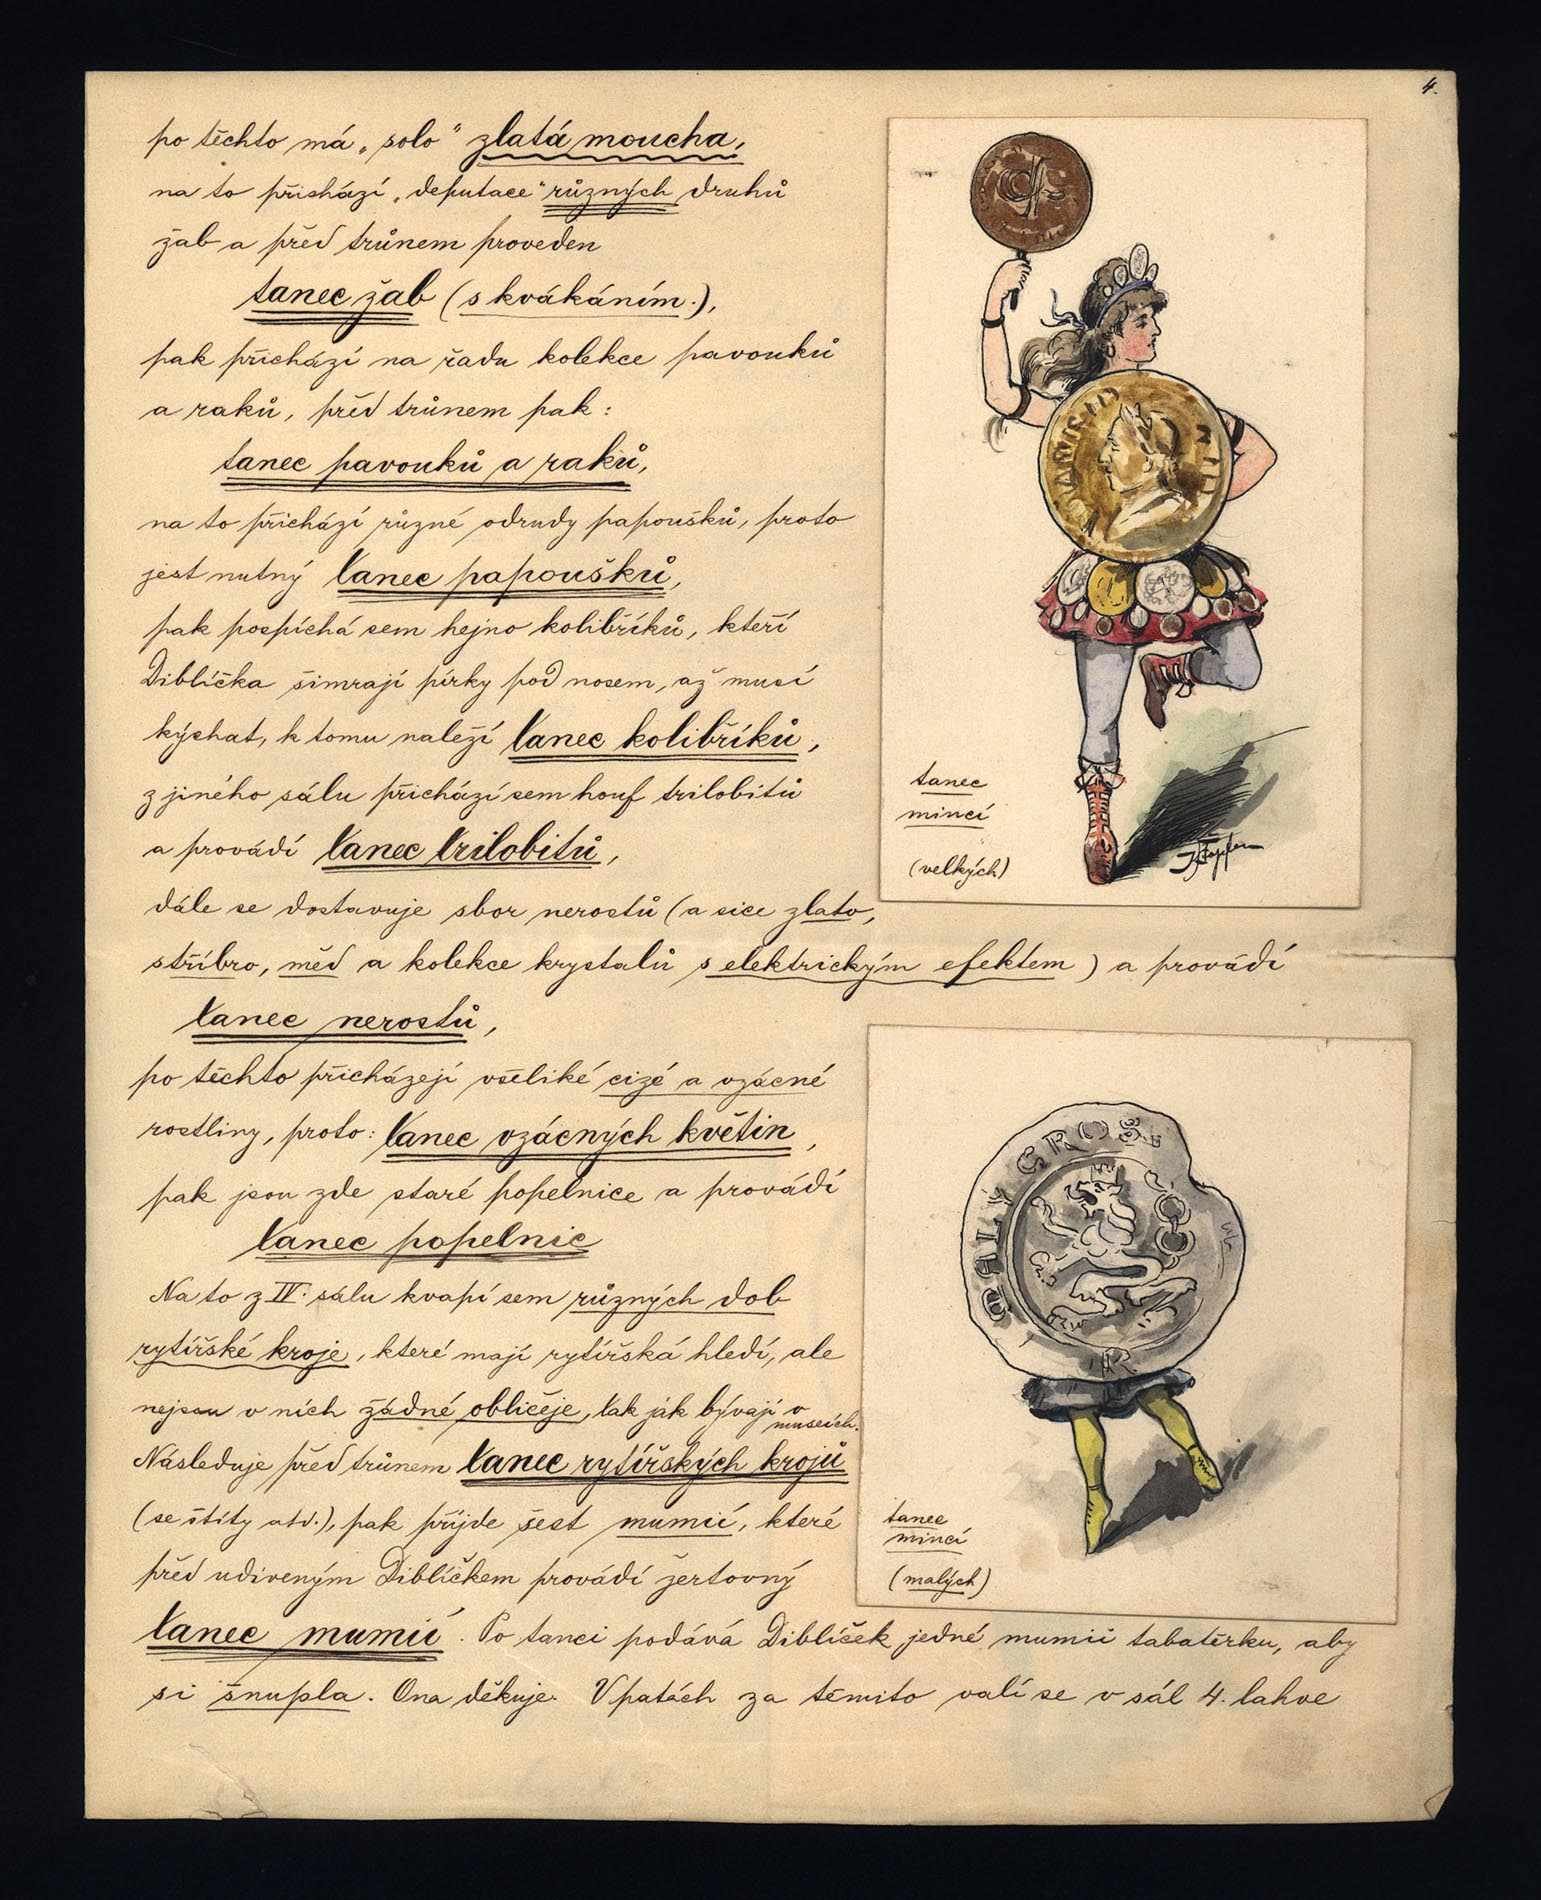 4.
po těchto má „solo“ zlatá moucha,
na to přichází „deputace“ různých druhů
žab a před trůnem proveden
tanec žab (s kvákáním.),
pak přichází na řadu kolekce pavouků
a raků, před trůnem pak:
tanec pavouků a raků,
na to přichází různé odrudy papoušků, proto
jest nutný tanec papoušků,
pak pospíchá sem hejno kolibříků, kteří
Diblíčka šimrají pírky pod nosem, až musí
kýchat, k tomu naleží tanec kolibříků,
z jiného sálu přichází sem houf trilobitů
a provádí tanec trilobitů,
dále se dostavuje sbor nerostů (a sice zlato,
stříbro, měd a kolekce krystalů s elektrickým efektem) a provádí
tanec nerostů,
po těchto přicházejí všeliké cizé a vzácné
rostliny, proto: tanec vzácných květin,
pak jsou zde staré popelnice a provádí
tanec popelnic
Na to z IV. sálu kvapí sem různých dob
rytířské kroje, které mají rytířská hledí, ale
nejsou v nich žádné obličeje, tak jak bývají v
museích.
Následuje před trůnem tanec rytířských krojů
(se štíty atd.), pak příjde šest mumií, které
před udiveným Diblíčkem provádí žertovný
tanec mumií. Po tanci podává Diblíček jedné mumii tabatěrku, aby
si šnupla. Ona děkuje. V patách za těmito valí se v sál 4. lahve
tanec
mincí
(velkých)
tanec
mincí
(malých)